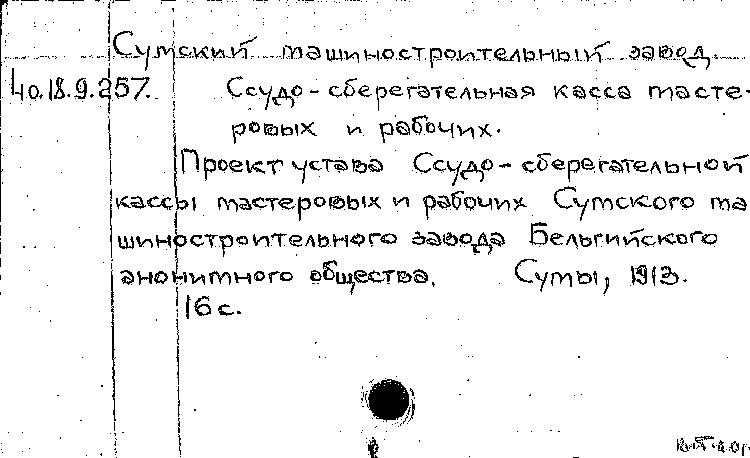 Сумский машиностроительный завод.
40.18.9.257. Ссудо-сберегательная касса масте-
ровых и рабочих.
Проект устава Ссудо-сберегательной
кассы мастеровых и рабочих Сумского ма
шиностроительного завода Бельгийского
анонимного общества. Сумы, 1913.
16 с.